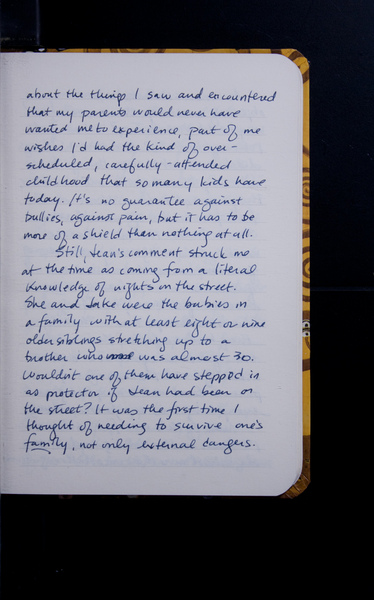 about the things I saw and encountered
that my parents would never have
wanted me to experience, part of me
wishes I'd had the kind of over-
scheduled, carefully-attended
childhood that so many kids have
today. It's no guarantee against
bullies, against pain, but it has to be
more of a shield than nothing at all.
Still, Jean's comment struck me
at the time as coming from a literal
knowledge of nights on the street.
She and Jake were the babies in
a family with at least eight or nine
older siblings stretching up to a
brother who was almost 30.
Wouldn't one of them have stepped in
as protector if Jean had been on
the street? It was the first time I
thought of needing to survive one's
family, not only external dangers.